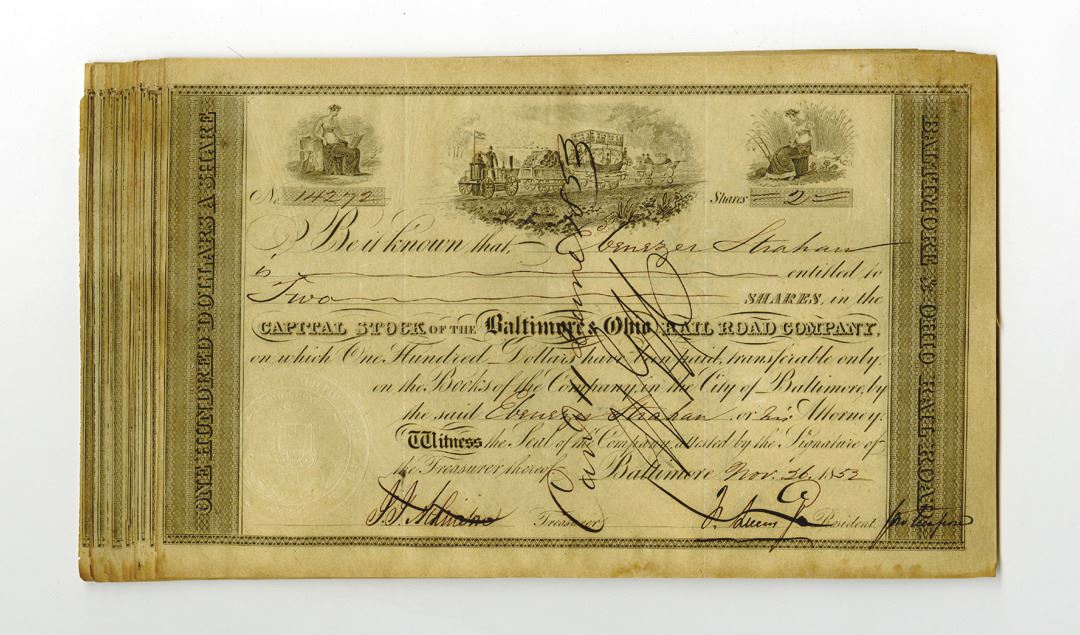 ONE HUNDRED DOLLARS A SHARE
No. 14272
Shares 2
Be it known that Ebenezer Strahan
is entitled to
Two SHARES, in the
CAPITAL STOCK OF THE Baltimore & Ohio RAIL ROAD COMPANY,
on which One Hundred Dollars have been paid, transferable only
on the Books of the Company, in the City of Baltimore, by
the said Ebenezer Strahan or his Attorney.
Witness the Seal of the Company attested by the Signature of
the Treasurer thereof Baltimore Nov. 26, 1852
Treasurer
President
BALTIMORE & OHIO RAIL-ROAD